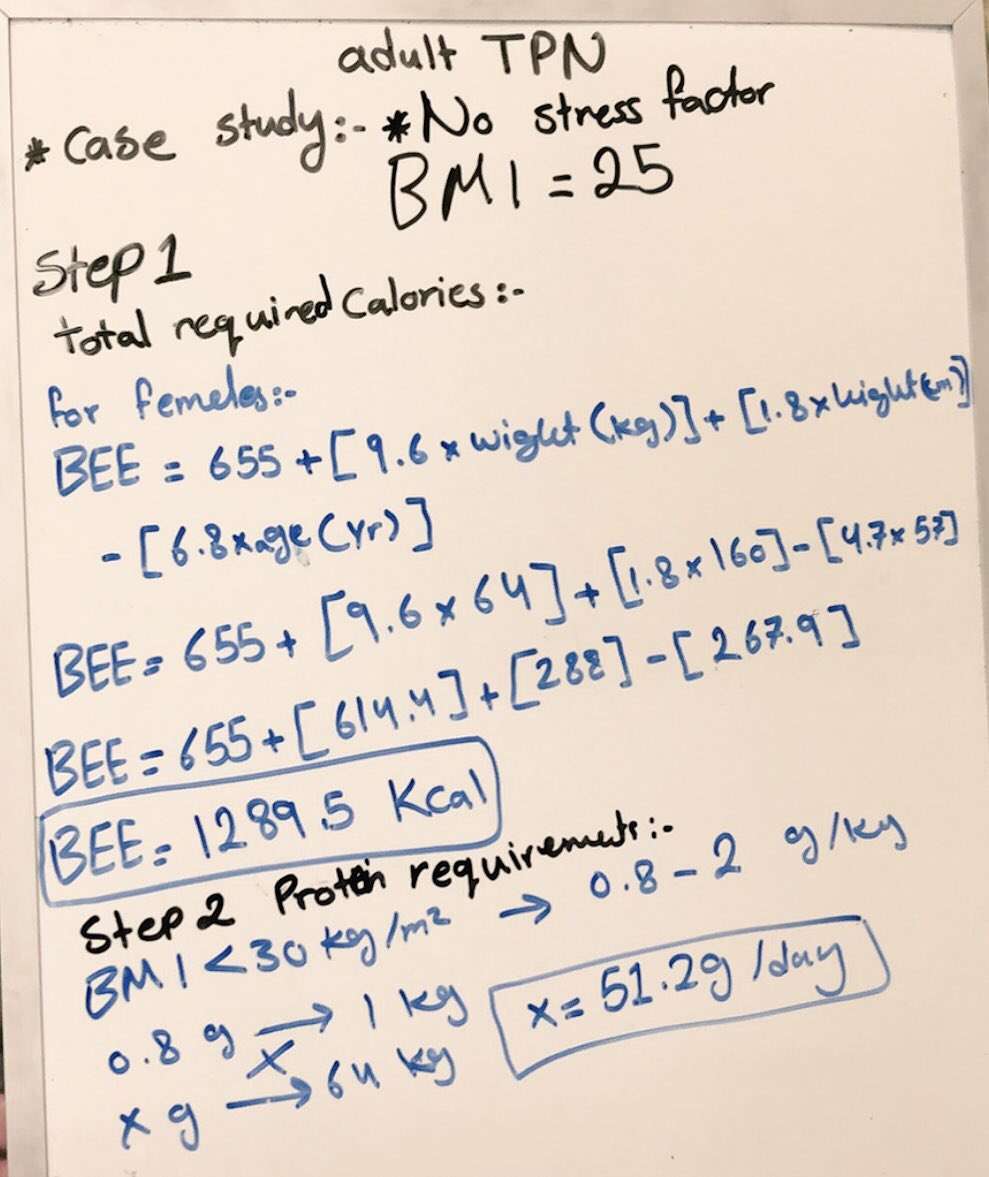 adult TPN
* Case study:- * No stress factor
BMI = 25
Step 1
total required Calories :-
for femeles:-
BEE = 655 + [9.6 x wight (kg)] + [1.8 x hight (cm)]
- [6.8 x age (yr)]
BEE = 655 + [9.6 x 64] + [1.8 x 160] - [4.7 x 57]
BEE = 655 + [614.4] + [288] - [267.9]
BEE = 1289.5 Kcal
Step 2 Protein requirements:-
BMI < 30 kg/m² → 0.8 - 2 g/kg
0.8 g → 1 kg
x
x g → 64 kg
x = 51.2g /day